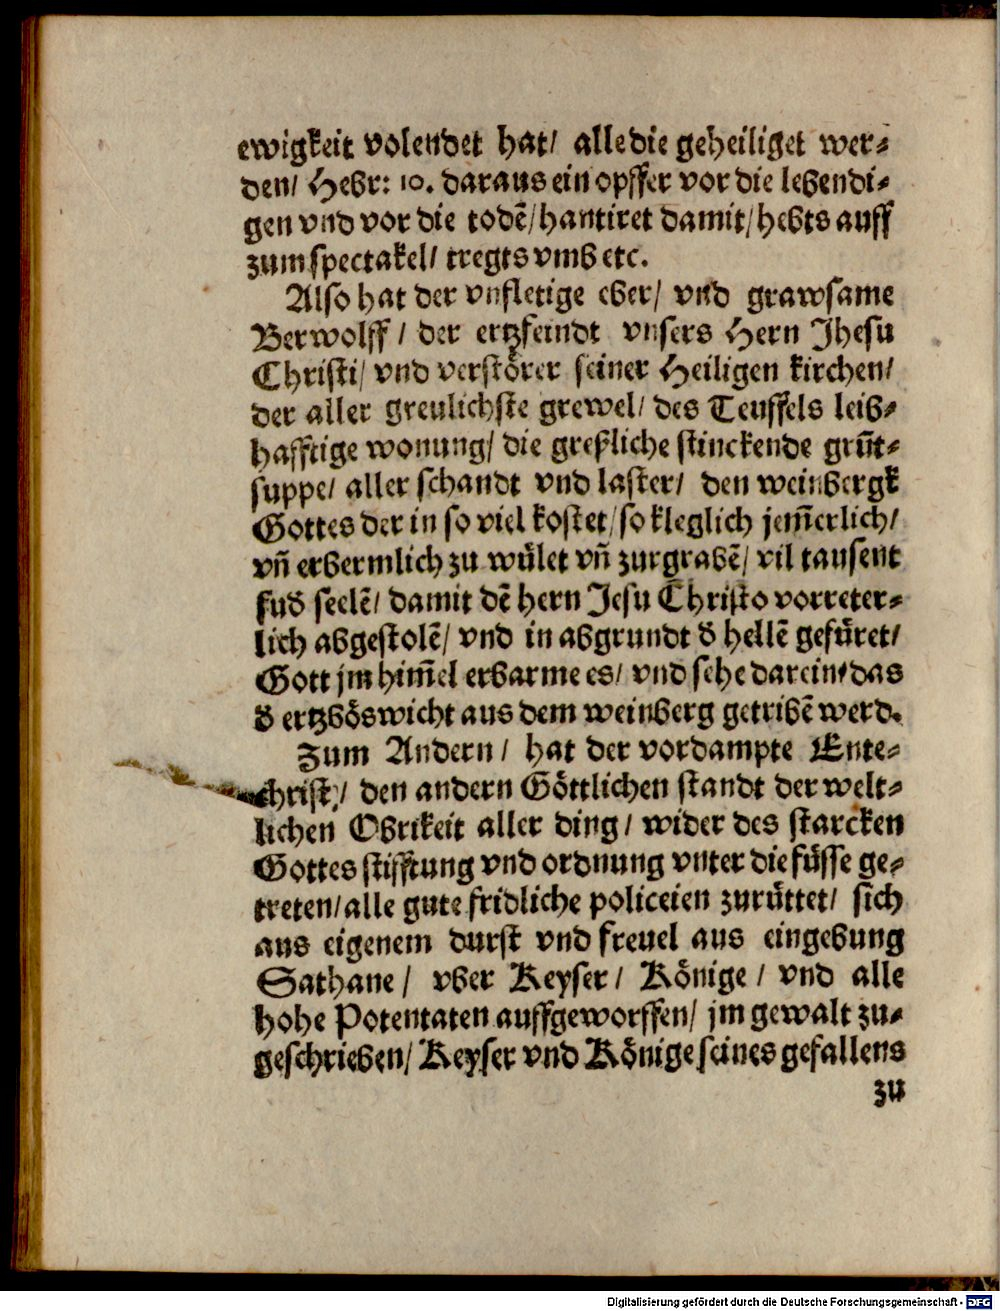 ewigkeit volendet hat/ alle die geheiliget wer-
den/ Hebr: 10. daraus ein opffer vor die lebendi-
gen vnd vor die todē/ hantiret damit/ hebts auff
zum spectakel/ tregts vmb etc.
Also hat der vnfletige eber/ vnd grawsame
Berwolff/ der ertzfeindt vnsers Hern Jhesu
Christi/ vnd verstörer seiner Heiligen kirchen/
der aller greulichste grewel/ des Teuffels leib-
hafftige wonung/ die greßliche stinckende grūt-
suppe/ aller schandt vnd laster/ den weinbergk
Gottes der in so viel kostet/ so kleglich jem̄erlich/
vn̄ erbermlich zu wület vn̄ zurgrabē/ vil tausent
fud seelē/ damit dē hern Jesu Christo vorreter-
lich abgestolē/ vnd in abgrundt d hellē gefüret/
Gott jm him̄el erbarme es/ vnd sehe darein/ das
d ertzböswicht aus dem weinberg getribē werd.
Zum Andern/ hat der vordampte Ente-
christ/ den andern Göttlichen standt der welt-
lichen Obrikeit aller ding/ wider des starcken
Gottes stifftung vnd ordnung vnter die füsse ge-
treten/ alle gute fridliche policeien zurüttet/ sich
aus eigenem durst vnd freuel aus eingebung
Sathane/ vber Keyser/ Könige/ vnd alle
hohe Potentaten auffgeworffen/ jm gewalt zu-
geschrieben/ Keyser vnd Könige seines gefallens
zu
Digitalisierung gefördert durch die Deutsche Forschungsgemeinschaft - DFG